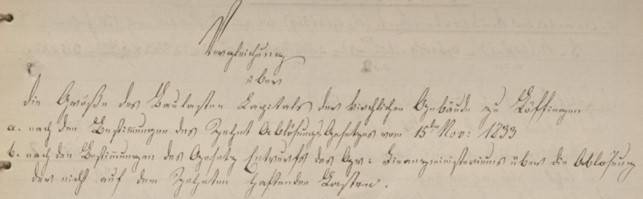 Vergleichung
über
die Größe des Baulasten Capitals der kirchlichen Gebäude zu Löffingen
a. nach den Bestimungen des Zehnt Ablösungs Gesetzes vom 15ten Nov: 1833
b. nach den Bestimungen des Gesetz Entwurfs des Gr: Finanzministeriums über die Ablösung
der nicht auf dem Zehnten haftenden Lasten.